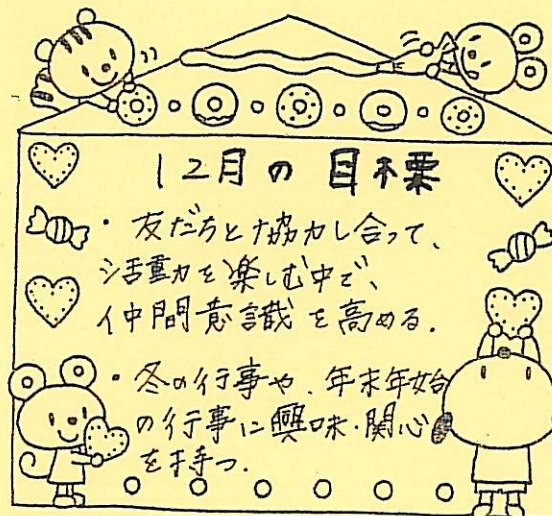 12月の目標
・友だちと協力し合って、
活動を楽しむ中で、
仲間意識を高める.
・冬の行事や、年末年始
の行事に興味・関心
を持つ.